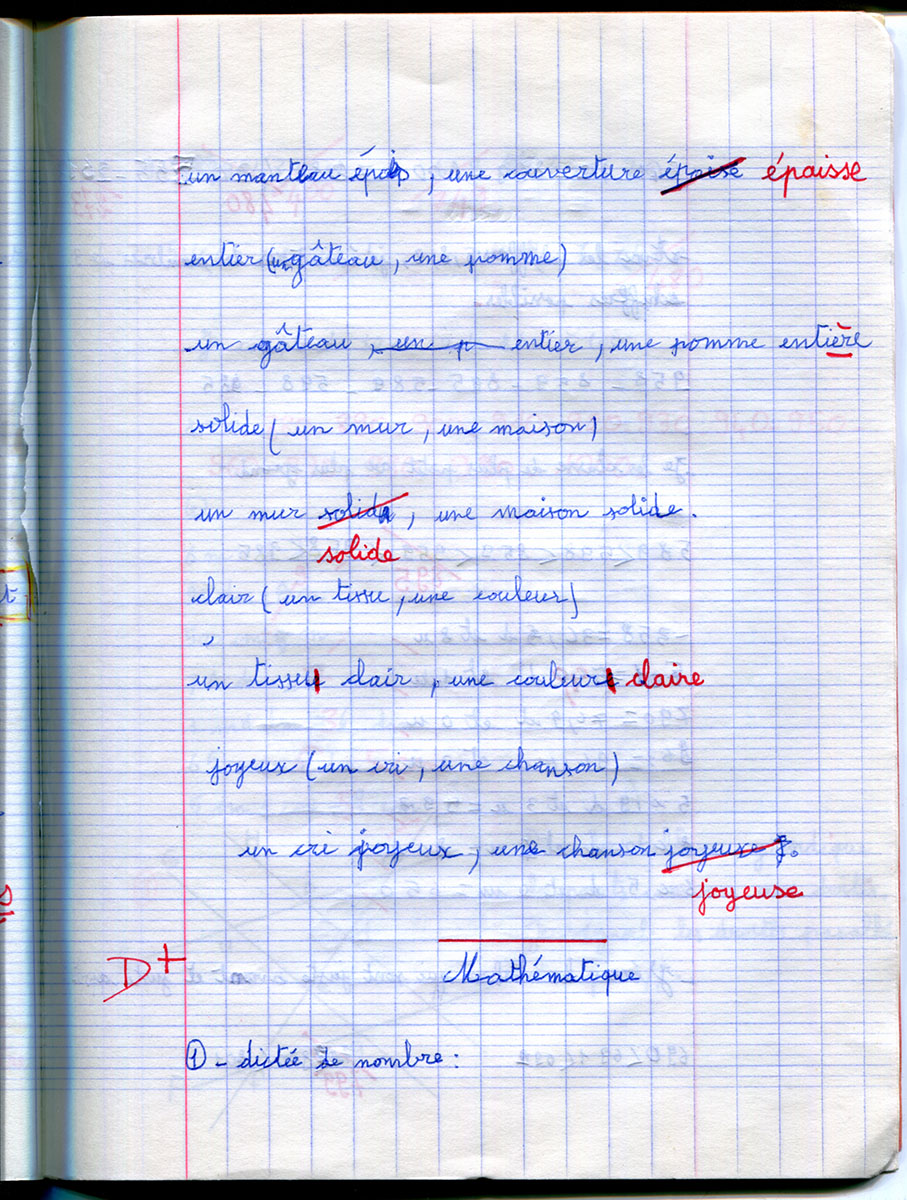 un manteau épais, une couverture épaise épaisse
entier (un gâteau, une pomme)
un gâteau, un p entier, une pomme entière
solide (un mur, une maison)
un mur solid, une maison solide.
solide
clair (un tissu, une couleur)
un tissu clair, une couleur claire
joyeux (un cri, une chanson)
un cri joyeux, une chanson joyeuxe
joyeuse
D+
Mathématique
① - dictée de nombre :